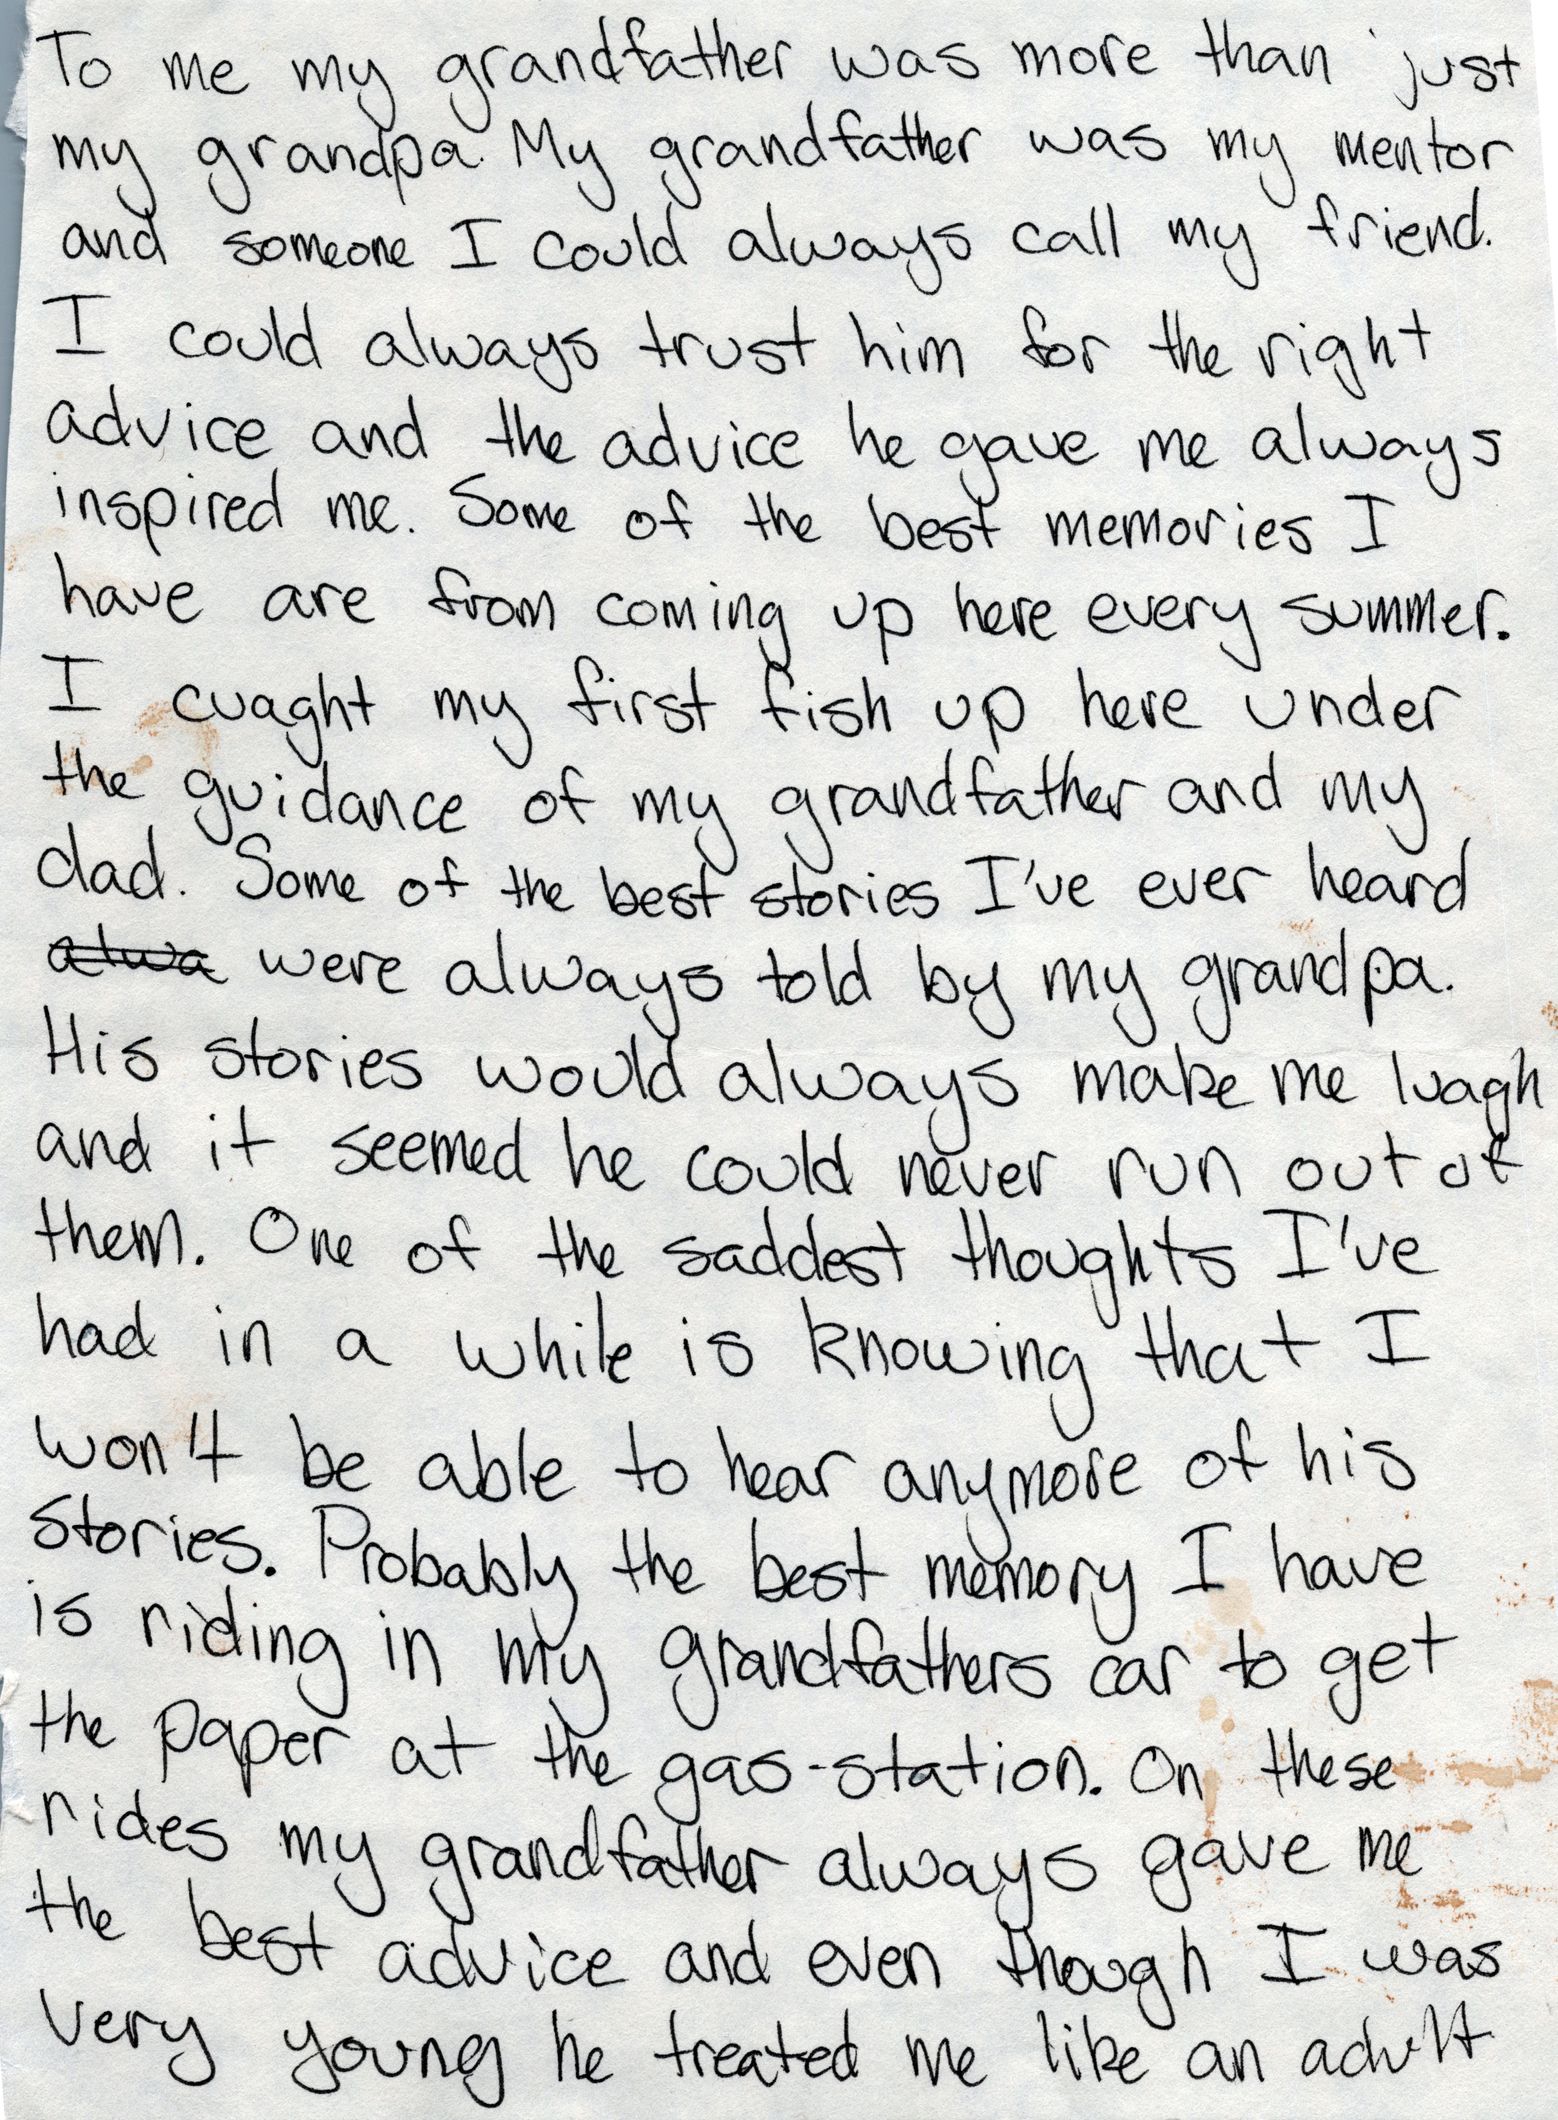 To me my grandfather was more than just
my grandpa. My grandfather was my mentor
and someone I could always call my friend.
I could always trust him for the right
advice and the advice he gave me always
inspired me. Some of the best memories I
have are from coming up here every summer.
I cuaght my first fish up here under
the guidance of my grandfather and my
dad. Some of the best stories I've ever heard
alwa were always told by my grandpa.
His stories would always make me luagh
and it seemed he could never run out of
them. One of the saddest thoughts I've
had in a while is knowing that I
won't be able to hear anymore of his
stories. Probably the best memory I have
is riding in my grandfathers car to get
the paper at the gas-station. On these
rides my grandfather always gave me
the best advice and even though I was
very young he treated me like an adult